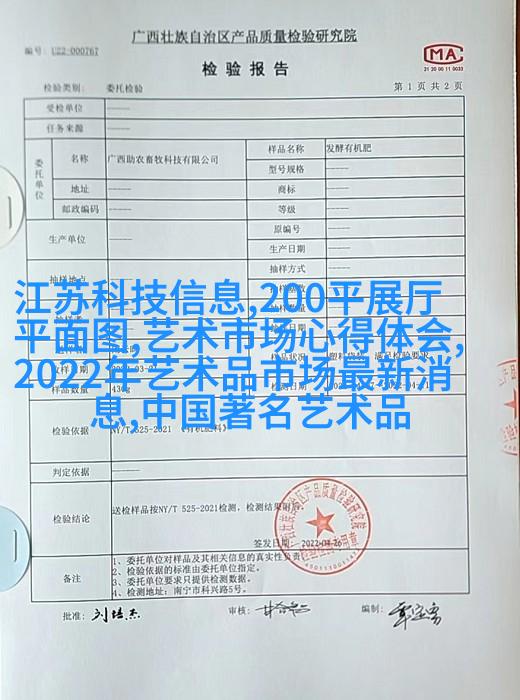 广西壮族自治区产品质量检验研究院
编号: U22-000767
检验报告
CMA
21 20 00 11 0033
检验类别: 委托检验
第 1 页 共 2 页
受检单位
任务来源
委托单位
名称 广西助农畜牧科技有限公司 样品名称 发酵有机肥
型号规格
地址 商标
邮政编码 等级
生产单位 原编号
生产日期
抽样地点 抽样方式
江苏科技信息,200平展厅
平面图,艺术市场心得体会,
2022年艺术品市场最新消
息,中国著名艺术品
样品数量 430g
检验依据 NY/T 525-2021 《有机肥料》
判定依据
检验结论 送检样品按NY/T 525-2021检测,检测结果附
签发日期: 2022-04-26
备注
1、委托单位对样品及其相关信息的真实性负责
2、检验依据的标准由委托单位指定。
3、委托单位要求只提供检测数据。
4、检测地址: 南宁市科兴路5号。
批准: 审核: 编制: